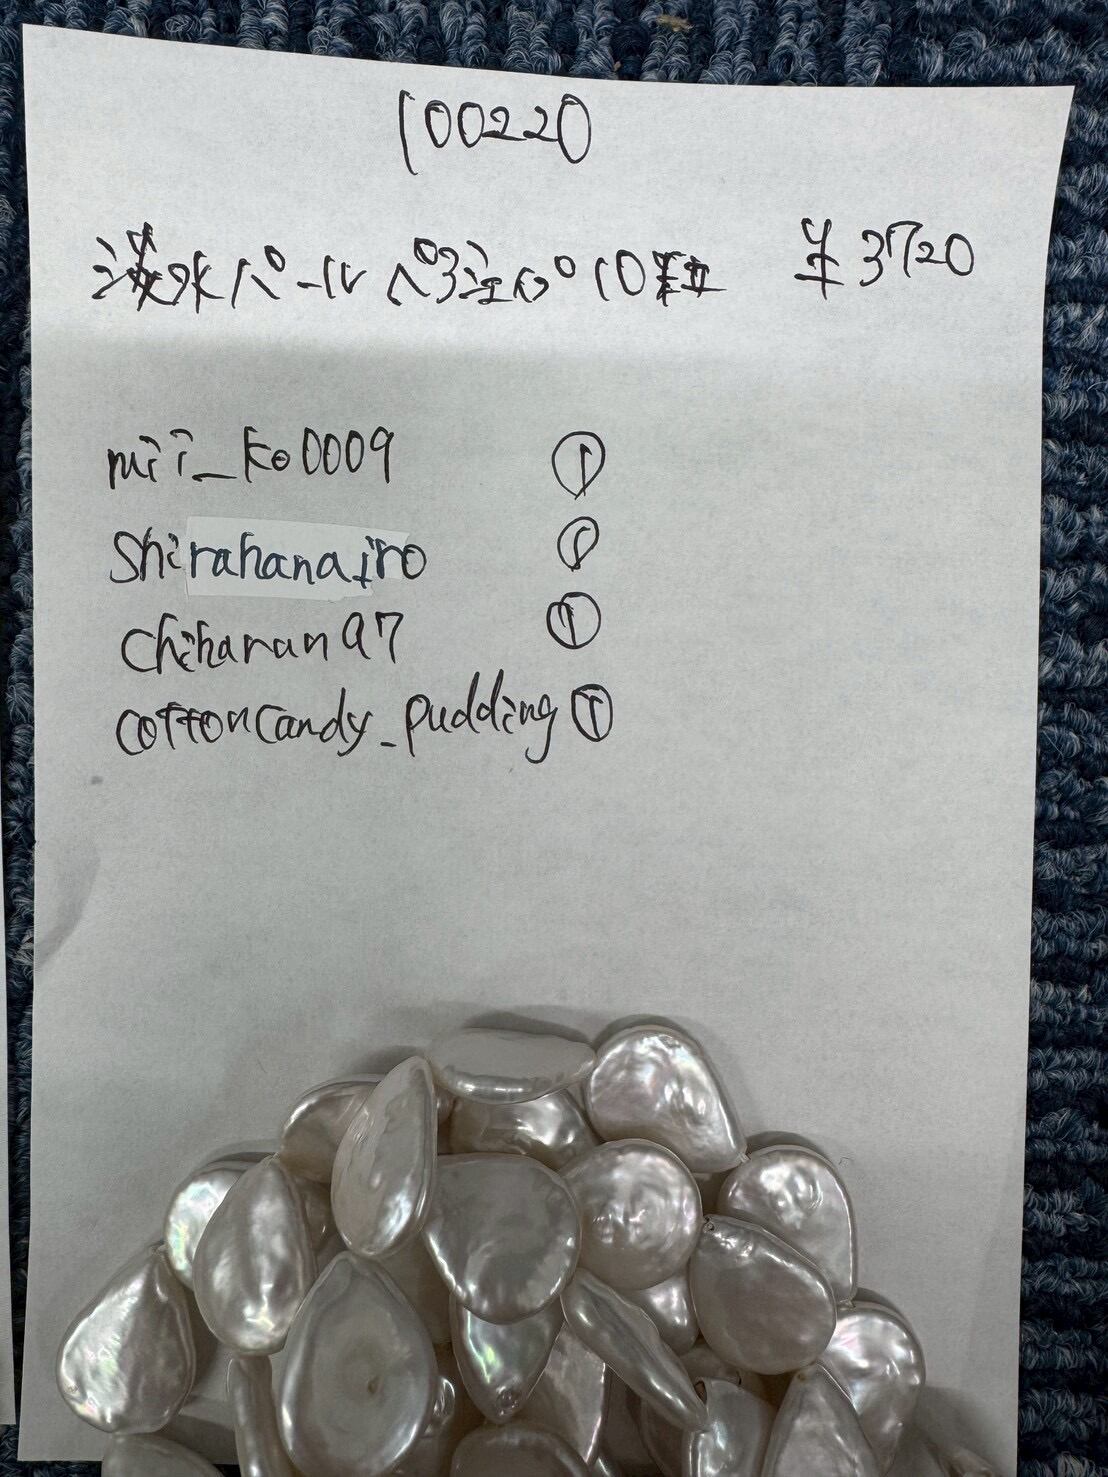 100220
淡水パール ペア涙型 10粒 ¥3720
mii_ko0009 ①
Shirahanairo ①
chiharan97 ①
cottoncandy_pudding ①